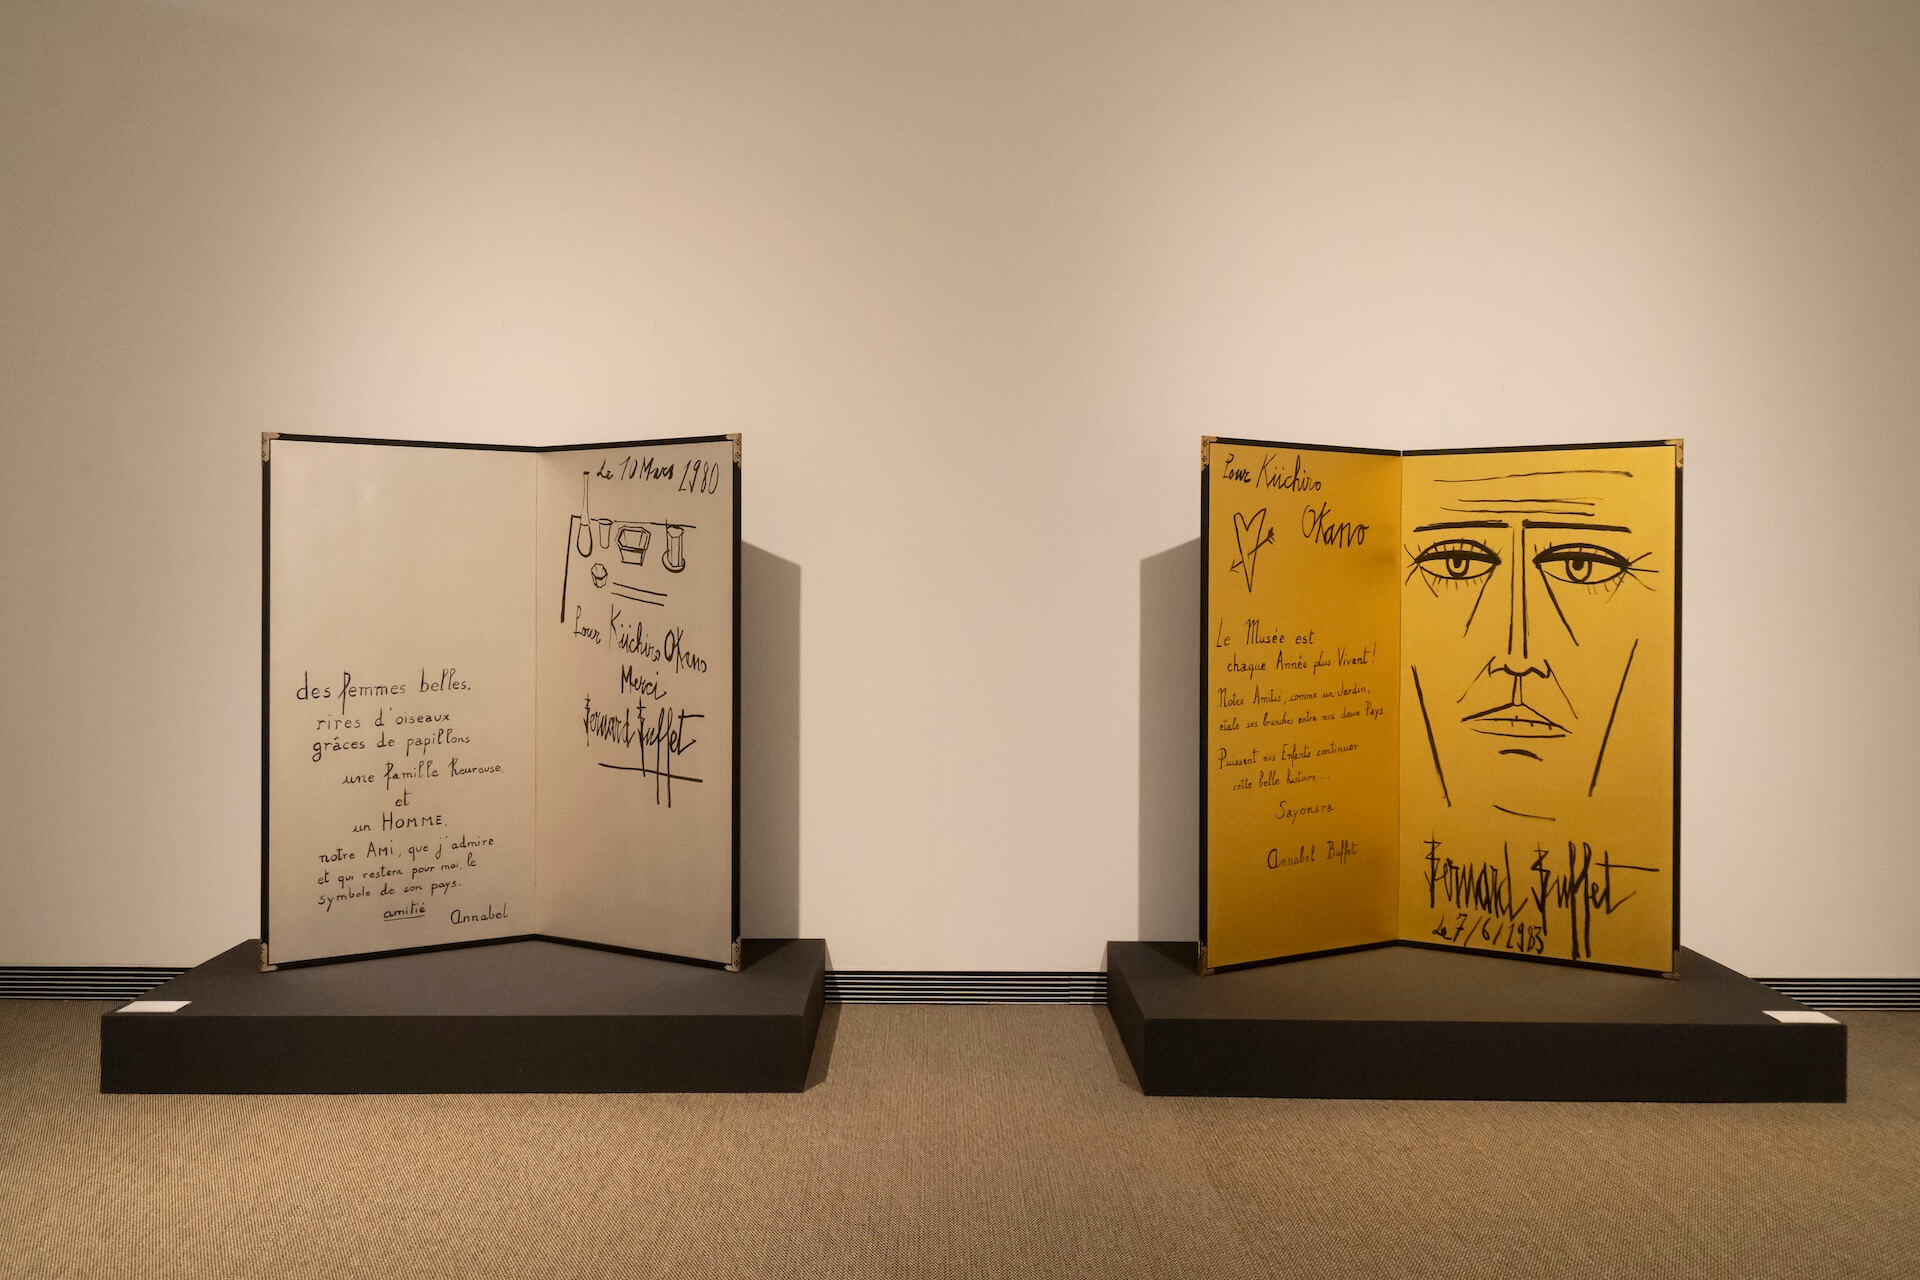 des femmes belles.
rires d'oiseaux
grâces de papillons
une famille heureuse.
et
un HOMME.
notre AMI, que j'admire
et qui restera pour moi, le
symbole de son pays.
amitié
Annabel
Le 10 Mars 1980
Pour Kiichiro Okano
Merci
Bernard Buffet
Pour Kiichiro
Okano
Le Musée est
chaque Année plus Vivant!
Notre Amitié, comme un Jardin,
étale ses branches entre nos deux Pays.
Puissent nos Enfants continuer
cette belle histoire...
Sayonara
Annabel Buffet
Bernard Buffet
Le 7/6/1983